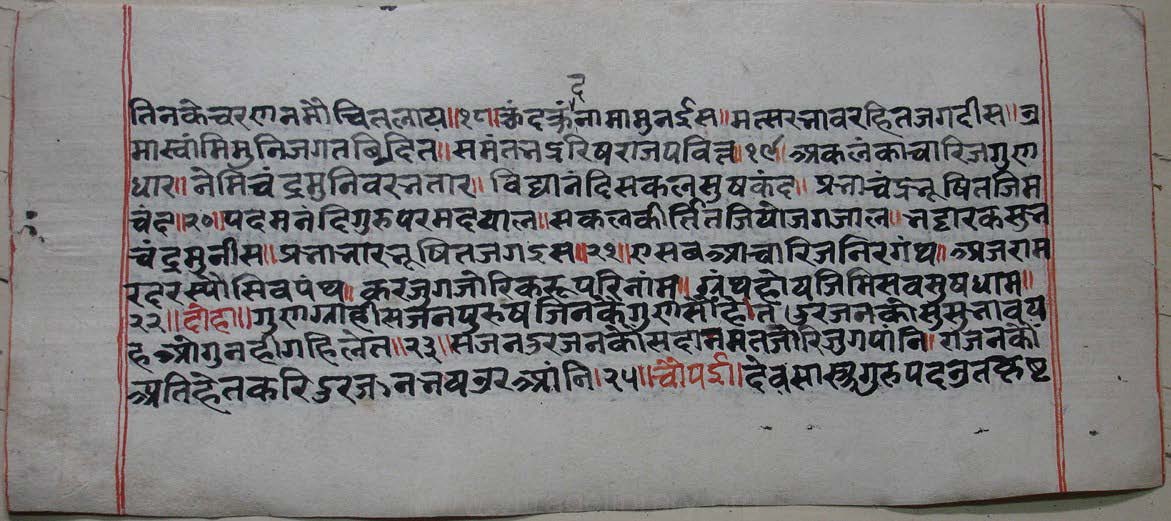 द
तिनकेचरणनमौचितलाय॥१८॥कुंदकुंनामामुनईस॥मत्सरभावरहितजगदीस॥उ
मास्वांमिमुनिजगतबिदित॥समंतभद्ररिषराजपवित्र॥१९॥अकलंकाचारिजगुण
धार॥नेमिचंद्रमुनिवरभवतार॥विद्यानंदिसकलसुषकंद॥प्रभाचंद्रभूषितजिम
चंद॥२०॥पदमनंदिगुरुपरमदयाल॥सकलकीर्त्तितजियोजगजाल॥भट्टारकसुभ
चंद्रमुनीस॥प्रभाभारभूषितजगईस॥२१॥एसबआचारिजनिरगंथ॥अजराम
रदरस्यौसिवपंथ॥करजुगजोरिकरूपरिनांम॥ग्रंथहोयजिमिसवसुषधाम॥
२२॥दोहा॥गुणग्राहीसजनपुरुषजिनकैगुणसौंहेत॥दुरजनकोसुसुभावयह
हऔगुनहीगहिलेत॥२३॥सजनदुरजनकोसदानमतजोरिजुगपांनि॥राजनकौं
अतिहेतकरिदुरजननभयउरआंनि॥२५॥चौपई॥देवसास्त्रगुरुपदनुतकष्ट